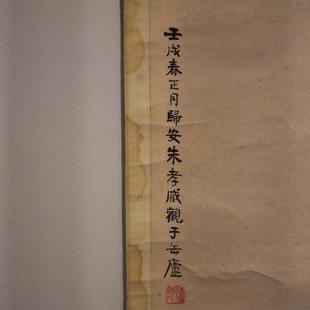 壬戌春正月歸安朱孝臧觀于缶廬